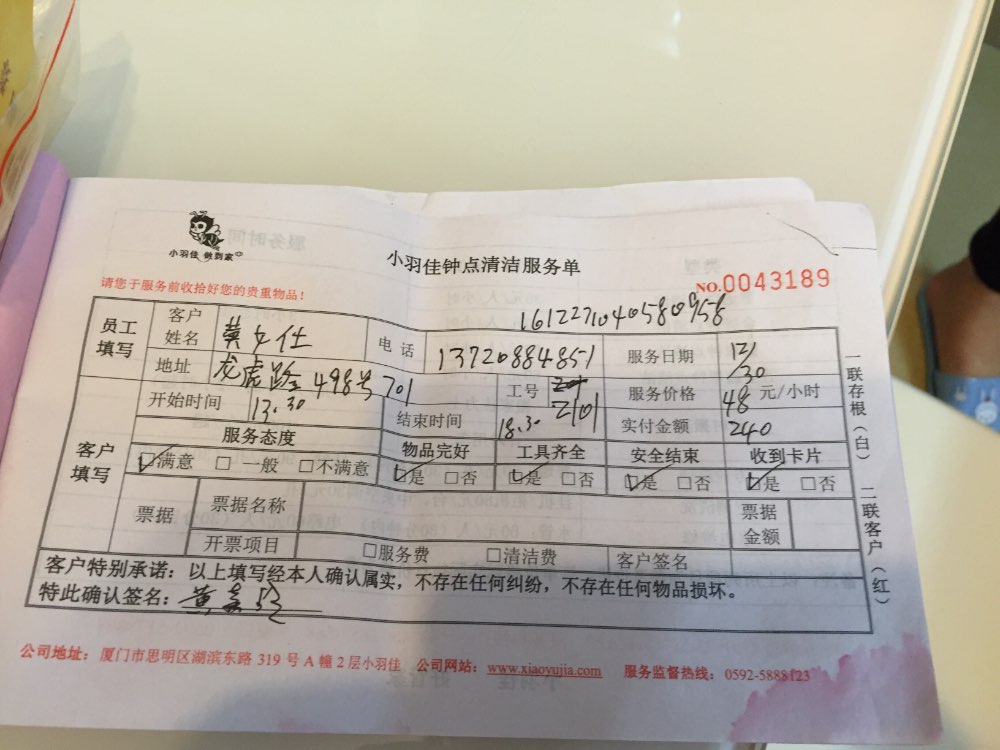 小羽佳 做到家
小羽佳钟点清洁服务单
NO.0043189
请您于服务前收拾好您的贵重物品！
1612271040580958
员工填写
客户姓名
黄女仕
电话
13720884851
服务日期
12/30
地址
龙虎路498号701
工号
2101
服务价格
48元/小时
开始时间
13.30
结束时间
18.30
实付金额
240
客户填写
服务态度
物品完好
工具齐全
安全结束
收到卡片
☑满意 □一般 □不满意
☑是 □否
☑是 □否
☑是 □否
☑是 □否
票据
票据名称
票据金额
开票项目
□服务费 □清洁费
客户签名
客户特别承诺：以上填写经本人确认属实，不存在任何纠纷，不存在任何物品损坏。
特此确认签名：
一联存根（白） 二联客户（红）
公司地址：厦门市思明区湖滨东路319号A幢2层小羽佳 公司网站：www.xiaoyujia.com 服务监督热线：0592-5888123